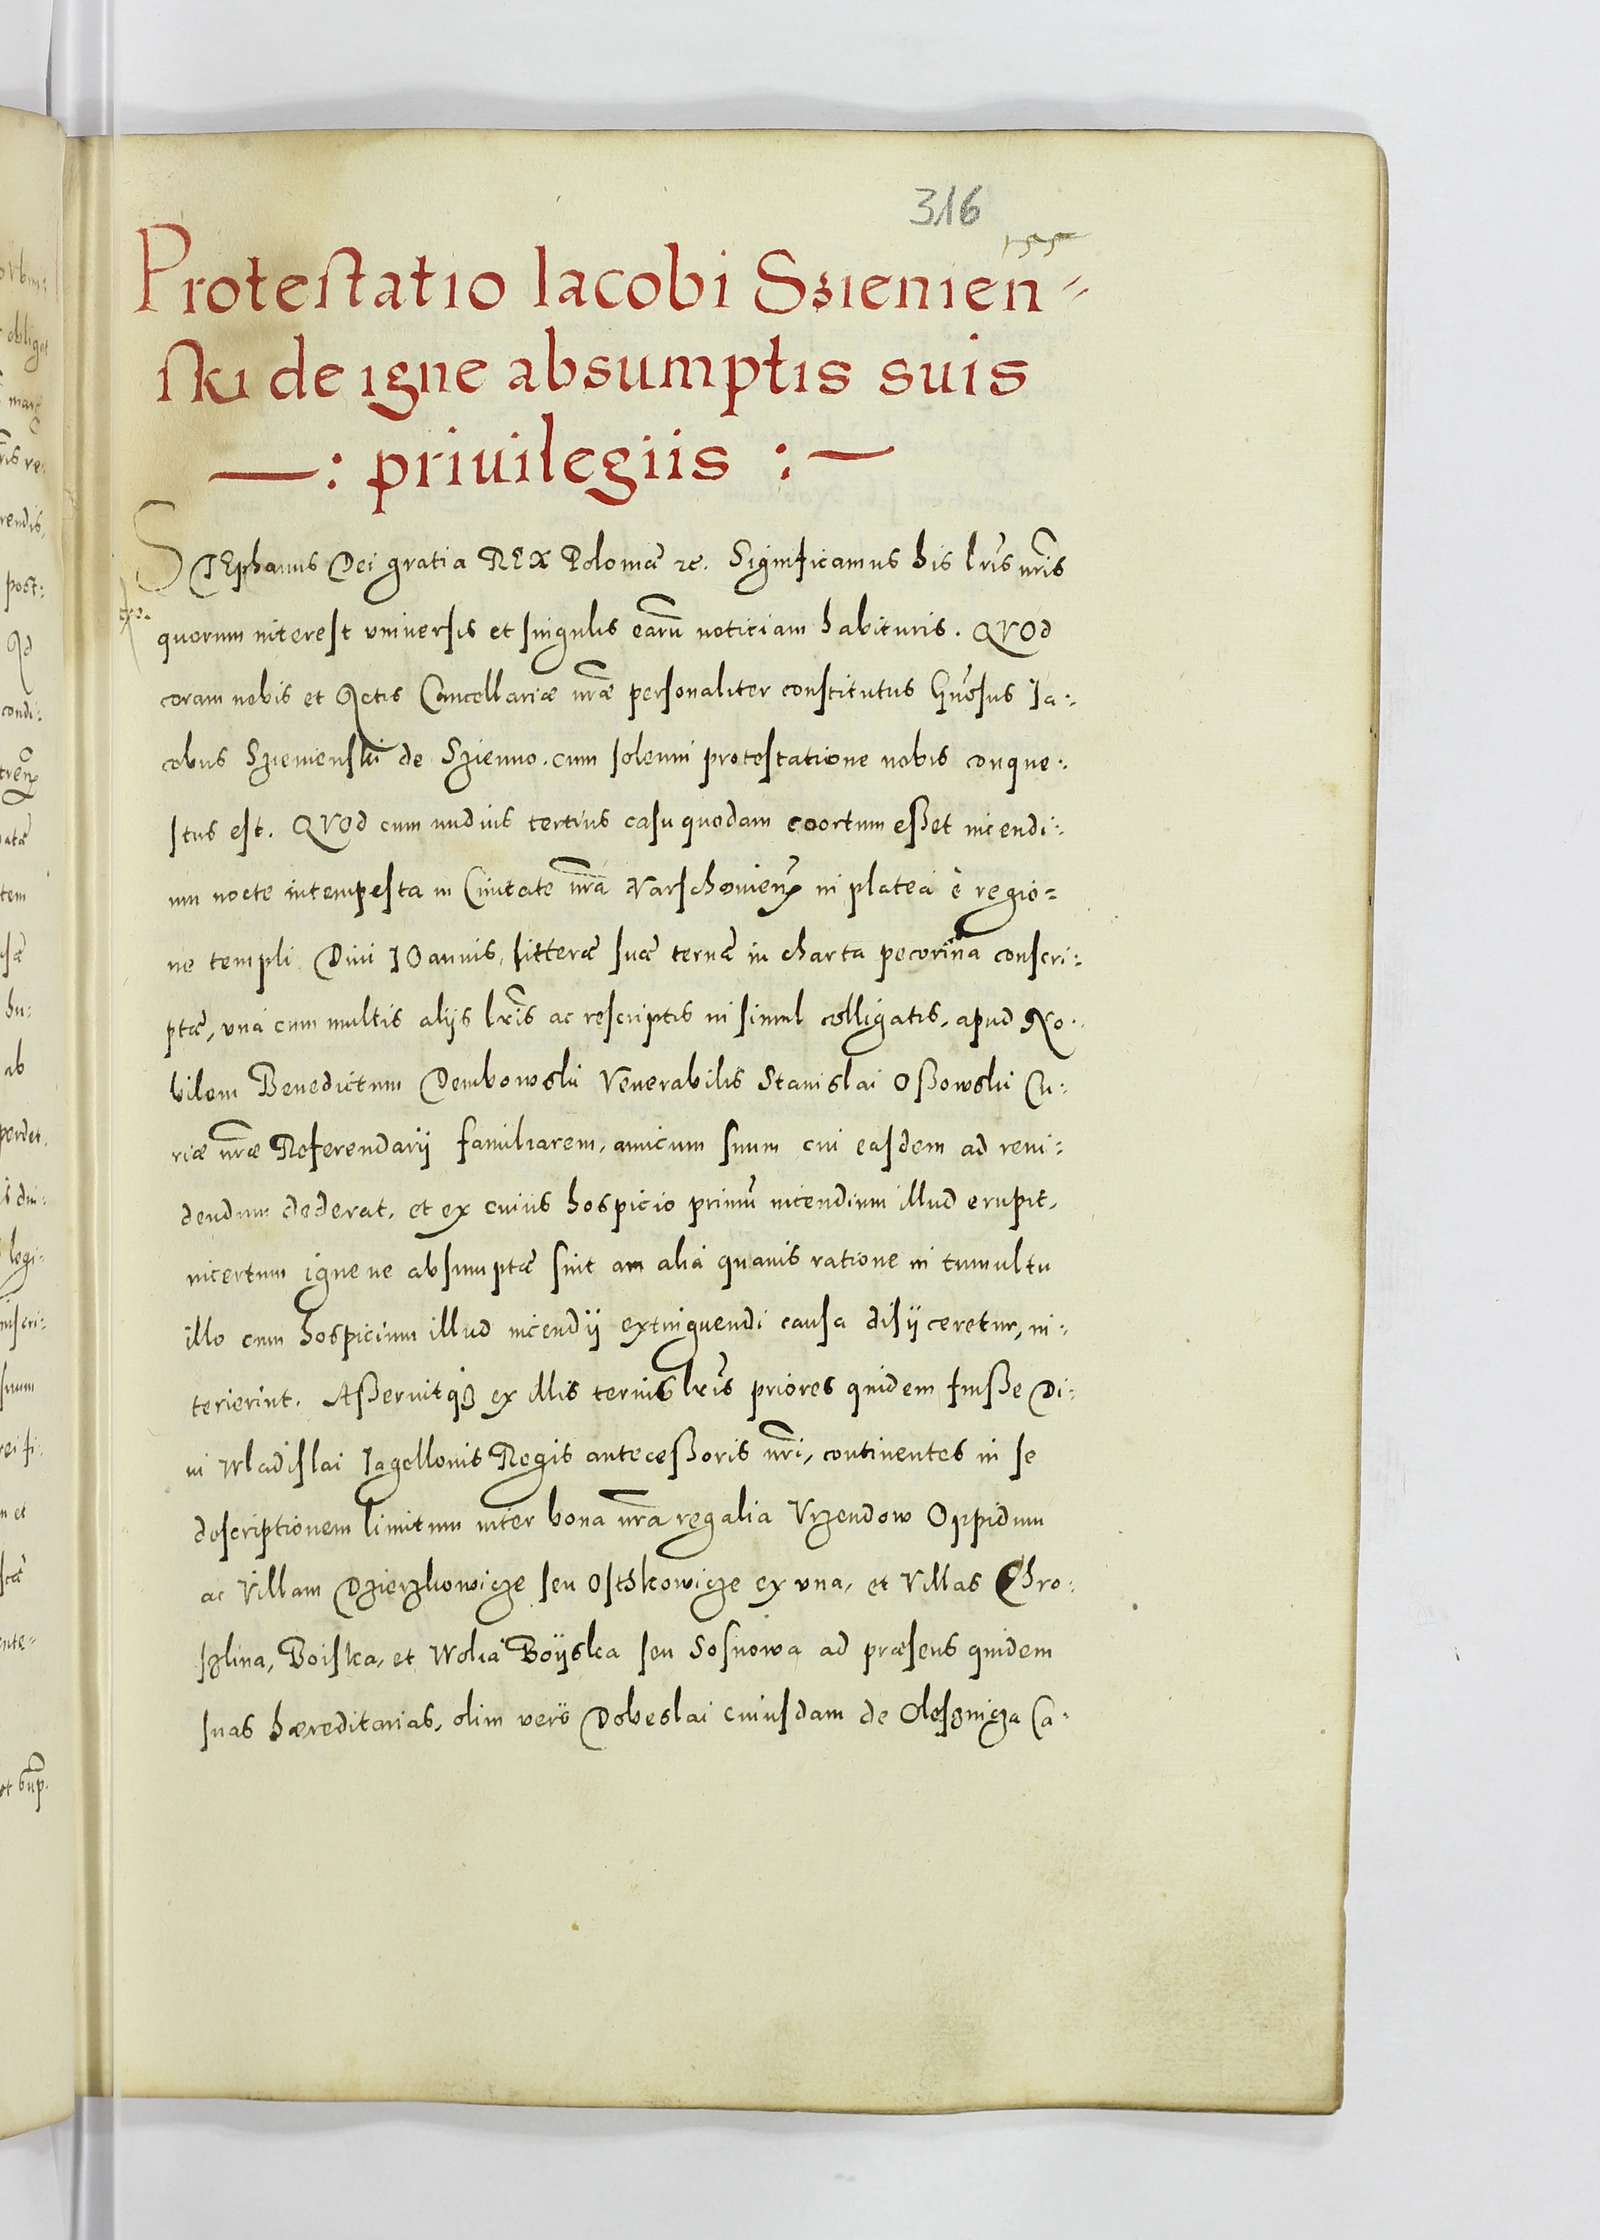 316
155
Protestatio Iacobi Szienien-
ski de igne absumptis suis
—: priuilegiis :—
STEphanus Dei gratia REX Poloniæ etc. Significamus his lris nris
quorum interest vniuersis et singulis earũ noticiam habituris. QVOd
coram nobis et Actis Cancellariæ nræ personaliter constitutus Gnosus Ia:
cobus Szienienski de Szienno. cum solenni protestatione nobis conque:
stus est. QVOd cum nudius tertius casu quodam coortum eßet incendi:
um nocte intempesta in Ciuitate nra Varschouien in platea è regio=
ne templi Diui IOannis, litteræ suæ ternæ in charta pecorina conscri:
ptæ, vnà cum multis alijs lris ac rescriptis in simul colligatis, apud No:
bilem Benedictum Dembowski Venerabilis Stanislai Oßowski Cu:
riæ nræ Referendarij familiarem, amicum suum cui easdem ad reui:
dendum dederat, et ex cuius hospicio primũ incendium illud erupit,
incertum igne ne absumptæ sint an alia quauis ratione in tumultu
illo cum hospicium illud incendij extinguendi causa disijceretur, in:
terierint. Aßeruitq3 ex illis ternis lris priores quidem fuiße Di:
ui Wladislai Iagellonis Regis anteceßoris nri, continentes in se
descriptionem limitum inter bona nra regalia Vrzendow Oppidum
ac Villam Dzierzkowicze seu Ostskowicze ex vna, et Villas Chro:
szlina, Boiska, et Wolia Boijska seu Sosnowa ad præsens quidem
suas hæreditarias, olim verò Dobeslai cuiusdam de Olesznicza Ca: